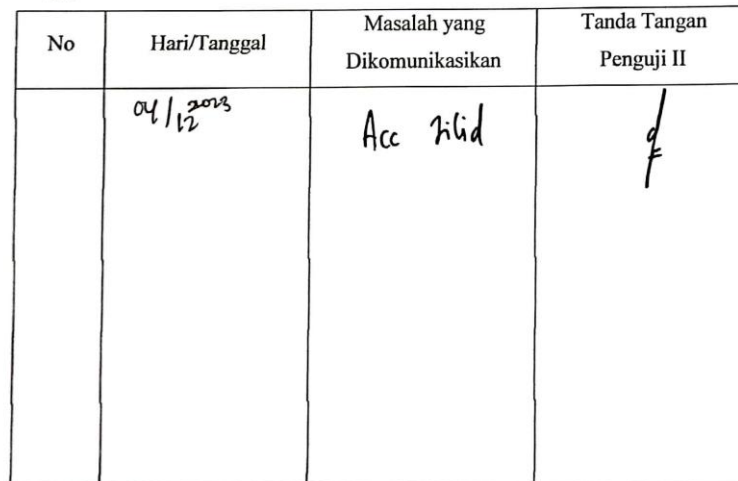 No
Hari/Tanggal
Masalah yang
Dikomunikasikan
Tanda Tangan
Penguji II
04/12 2023
Acc Jilid